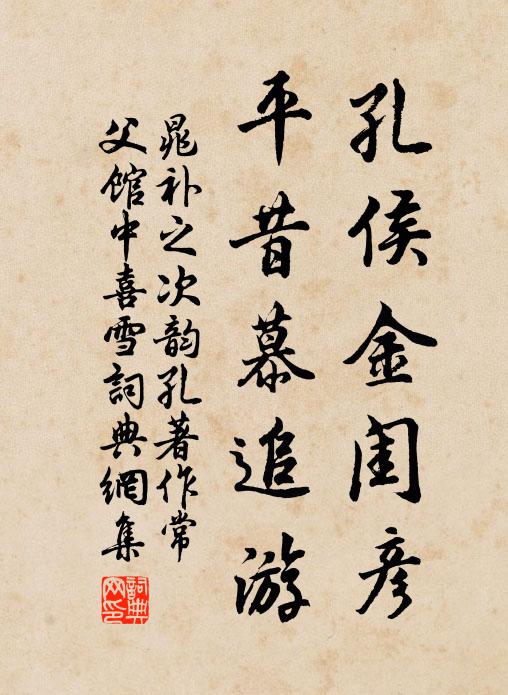 孔侯金闺彦
平昔慕追游
晁补之次韵孔著作常
父馆中喜雪詞典網集
詞典網印